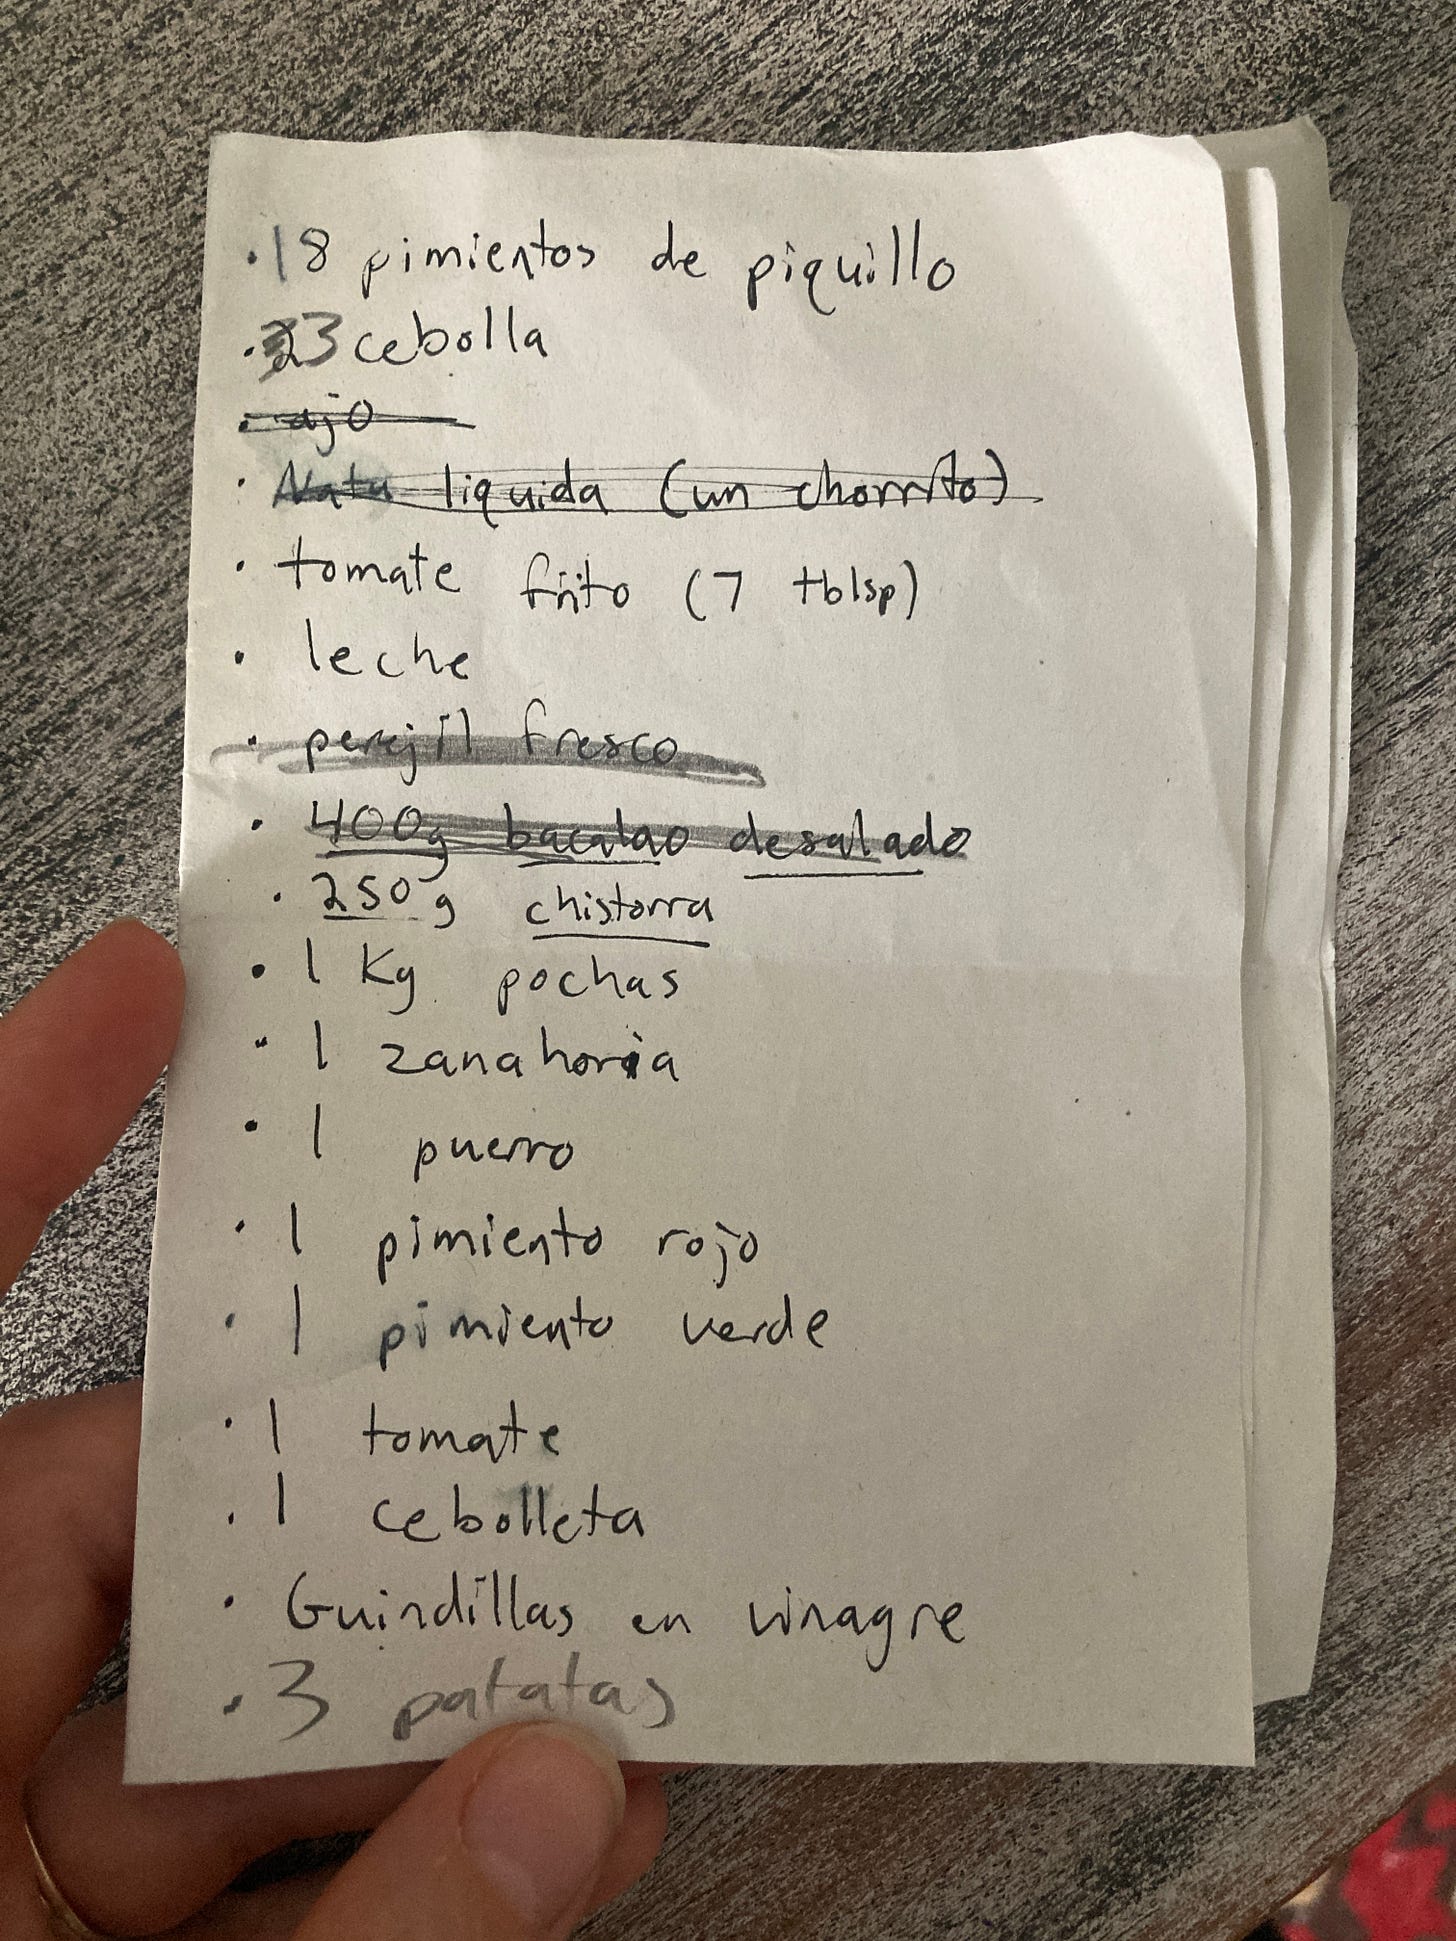 · 18 pimientos de piquillo
· 3 cebolla
· ajo
· Nata liquida (un chorrito)
· tomate frito (7 tblsp)
· leche
· perejil fresco
· 400g bacalao desalado
· 250g chistorra
· 1 Kg pochas
· 1 zanahoria
· 1 puerro
· 1 pimiento rojo
· 1 pimiento verde
· 1 tomate
· 1 cebolleta
· Guindillas en vinagre
· 3 patatas